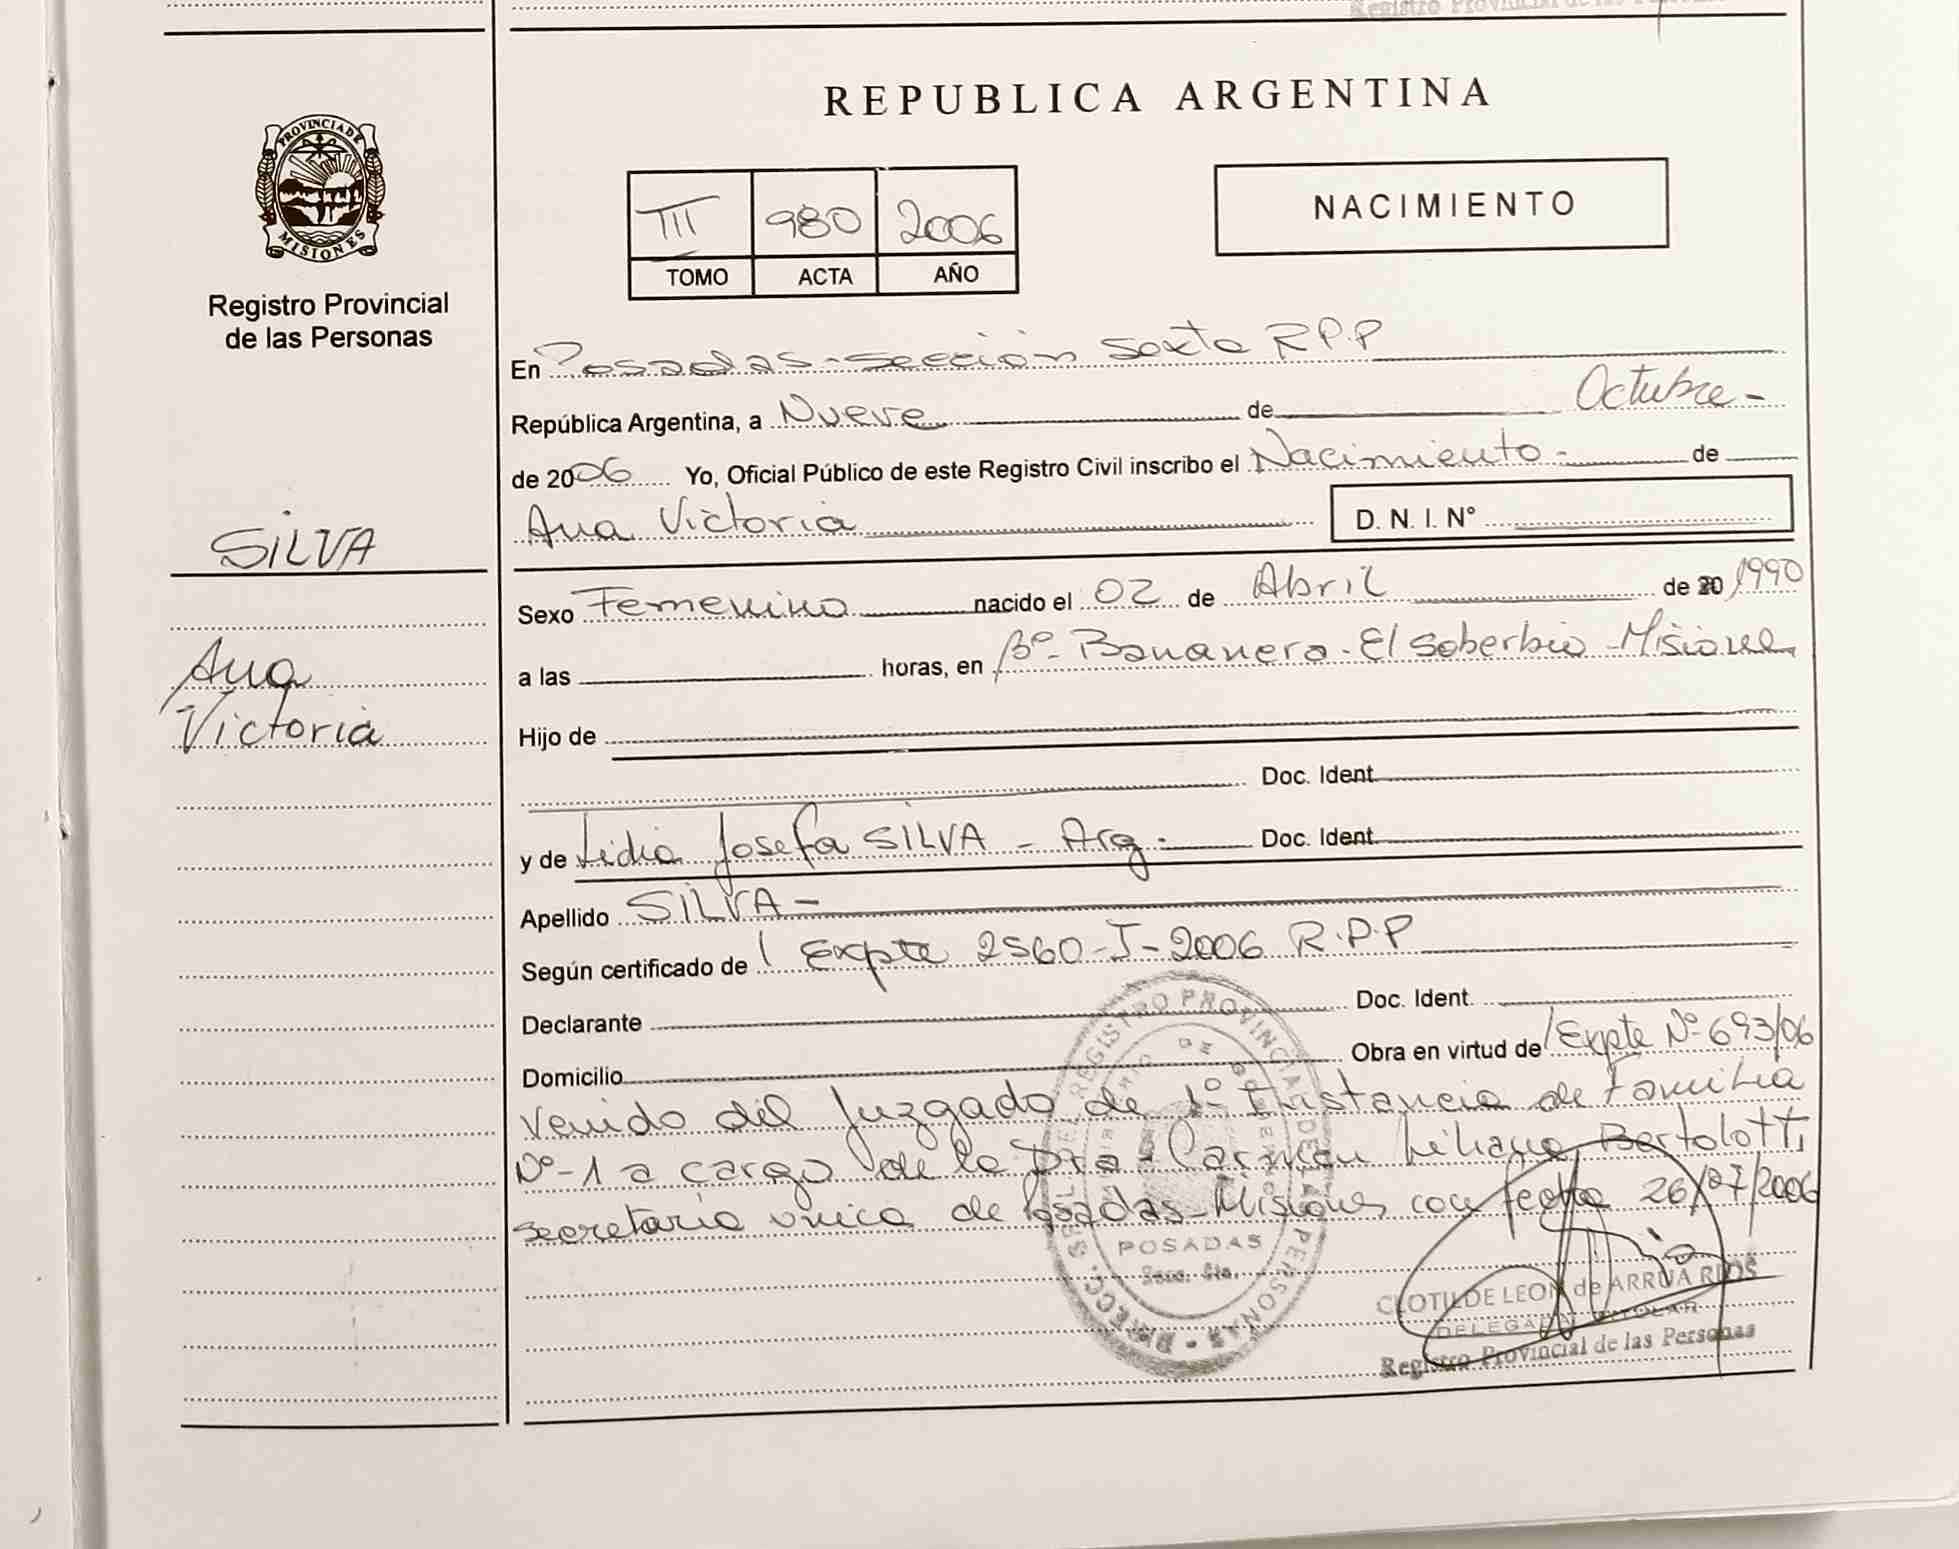 Registro Provincial de las Personas
PROVINCIA DE
MISIONES
Registro Provincial
de las Personas
SILVA
Ana
Victoria
REPUBLICA ARGENTINA
III 980 2006
TOMO ACTA AÑO
NACIMIENTO
En Posadas - sección sexta RPP
República Argentina, a Nueve de Octubre -
de 2006 Yo, Oficial Público de este Registro Civil inscribo el Nacimiento - de
Ana Victoria D. N. I. N°
Sexo Femenino nacido el 02 de Abril de 20 1990
a las horas, en Bº- Bananero - El soberbio - Misiones
Hijo de
Doc. Ident.
y de Lidia Josefa SILVA - Arg. Doc. Ident.
Apellido SILVA -
Según certificado de / Expte 2560-I-2006 R.P.P
Declarante Doc. Ident.
Domicilio Obra en virtud de / Expte Nº 693/06
venido del Juzgado de 1º Instancia de Familia
Nº-1 a cargo de la Dra. Carmen Liliana Bertolotti
secretaría única de Posadas - Misiones con fecha 26/07/2006
REGISTRO PROVINCIAL DE LAS PERSONAS
POSADAS
CLOTILDE LEON de ARRUA RIOS
DELEGADA TITULAR
Registro Provincial de las Personas